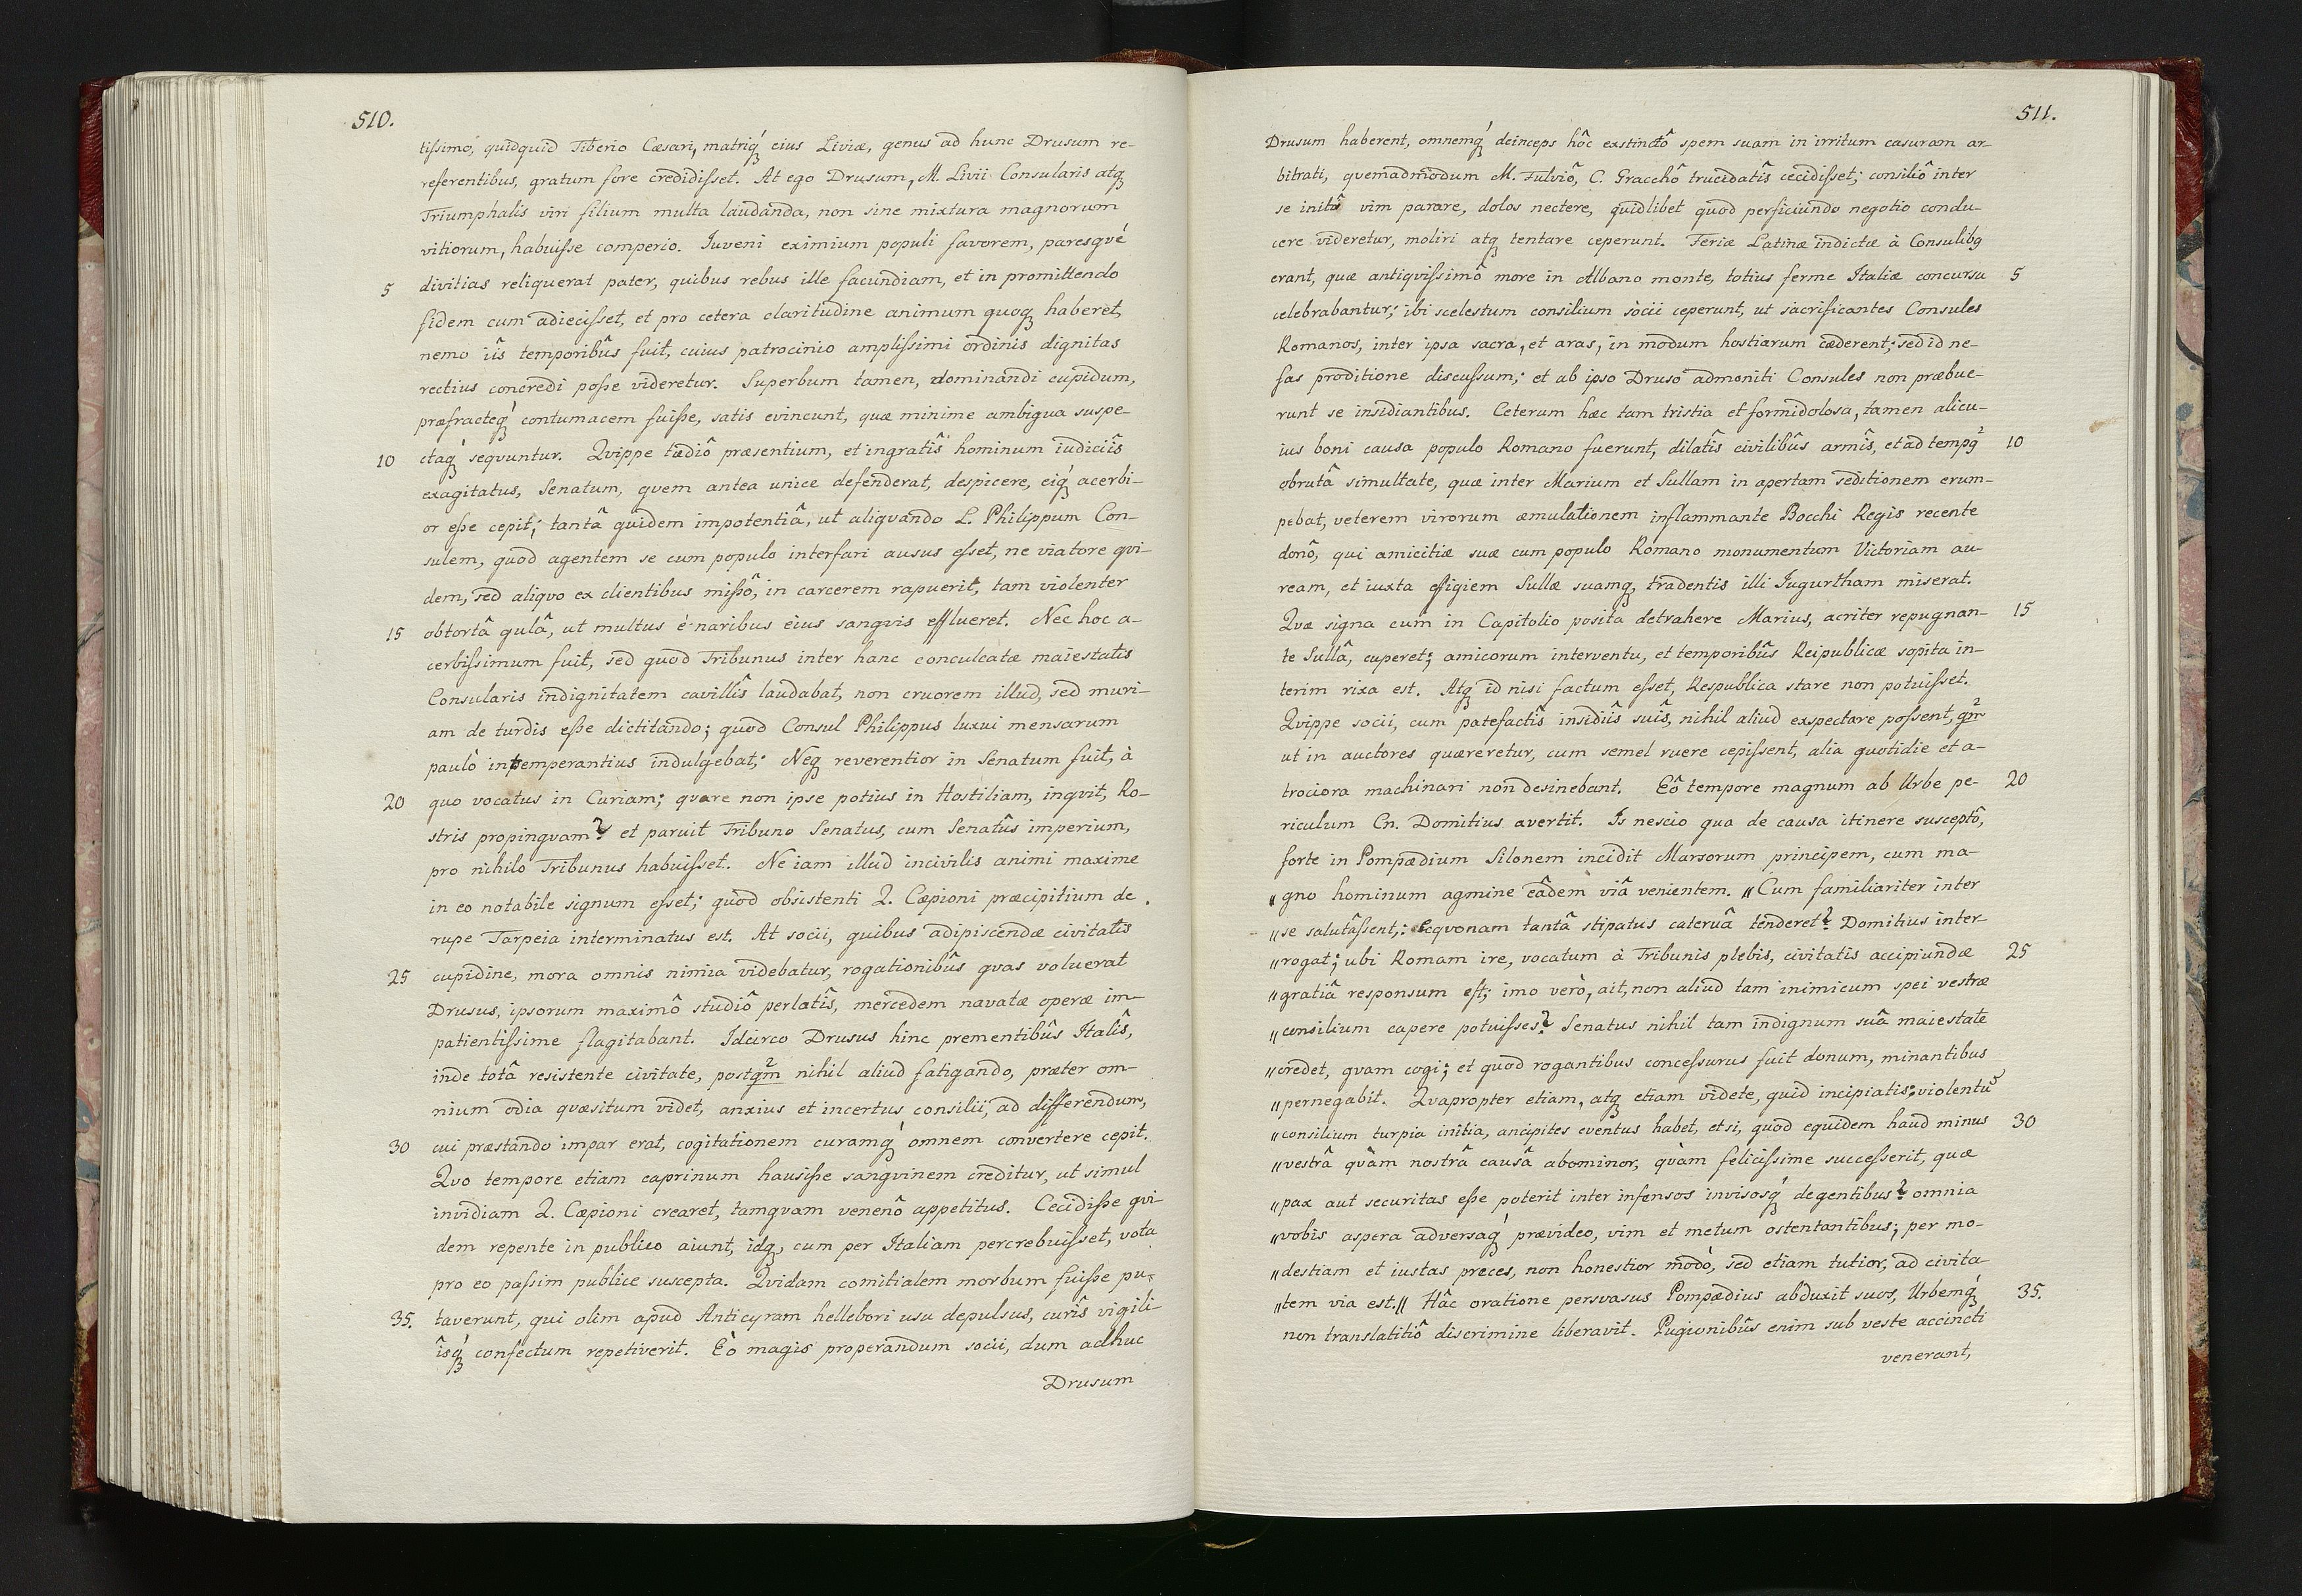 510.
tissimo, quidquid Tiberio Cæsari, matriq́ꝫ eius Liviæ, genus ad hunc Drusum re-
referentibus, gratum fore credidisset. At ego Drusum, M. Livii Consularis atqꝫ
Triumphalis viri filium multa laudanda, non sine mixtura magnorum
vitiorum, habuisse comperio. Iuveni eximium populi favorem, paresqvé
5 divitias reliquerat pater, quibus rebus ille facundiam, et in promittendo
fidem cum adiecisset, et pro cetera claritudine animum quoqꝫ haberet,
nemo iîs temporibûs fuit, cuius patrocinio amplissimi ordinis dignitas
rectius concredi posse videretur. Superbum tamen, dominandi cupidum,
præfracteq́ꝫ contumacem fuisse, satis evincunt, quæ minime ambigua suspe-
10 ctaq́ꝫ seqvuntur. Qvippe tædiô præsentium, et ingratîs hominum iudiciîs
exagitatus, Senatum, qvem antea unice defenderat, despicere, eiq́ꝫ acerbi-
or esse cepit; tantâ quidem impotentiâ, ut aliqvando L. Philippum Con-
sulem, quod agentem se cum populo interfari ausus esset, ne viatore qvi-
dem, sed aliqvo ex clientibus missô, in carcerem rapuerit, tam violenter
15 obtortâ gulâ, ut multus è naribus eius sangvis efflueret. Nec hoc a-
cerbissimum fuit, sed quod Tribunus inter hanc conculcatæ maiestatis
Consularis indignitatem cavillîs laudabat, non cruorem illud, sed muri-
am de turdis esse dictitando; quod Consul Philippus luxui mensarum
paulò intemperantius indulgebat; Neqꝫ reverentior in Senatum fuit, à
20 quo vocatus in Curiam; qvare non ipse potius in Hostiliam, inqvit, Ro-
stris propinqvam? et paruit Tribuno Senatus, cum Senatûs imperium,
pro nihilo Tribunus habuisset. Ne iam illud incivilis animi maxime
in eo notabile signum esset; quod obsistenti Q. Cæpioni præcipitium de
rupe Tarpeia interminatus est. At socii, quibus adipiscendæ civitatis
25 cupidine, mora omnis nimia videbatur, rogationibûs qvas voluerat
Drusus, ipsorum maximô studiô perlatîs, mercedem navatæ operæ im-
patientissime flagitabant. Idcirco Drusus hinc prementibûs Italîs,
inde totâ resistente civitate, postqm̃ nihil aliud fatigando, præter om-
nium odia qvæsitum videt, anxius et incertus consilii, ad differendum,
30 cui præstando impar erat, cogitationem curamq́ꝫ omnem convertere cepit.
Qvo tempore etiam caprinum hausisse sangvinem creditur, ut simul
invidiam Q. Cæpioni crearet, tamqvam venenô appetitus. Cecidisse qvi-
dem repente in publico aiunt, idqꝫ, cum per Italiam percrebuisset, vota
pro eo passim publice suscepta. Qvidam comitialem morbum fuisse pu-
35. taverunt, qui olim apud Anticyram hellebori usu depulsus, curîs vigili-
îsq́ꝫ confectum repetiverit. Eò magis properandum socii, dum adhuc
Drusum
511.
Drusum haberent, omnemq́ꝫ deinceps hôc exstinctô spem suam in irritum casuram ar-
bitrati, qvemadmodum M. Fulviô, C. Gracchô trucidatîs cecidisset; consiliô inter
se initô vim parare, dolos nectere, quidlibet quod perficiundo negotio condu-
cere videretur, moliri atqꝫ tentare ceperunt. Feriæ Latinæ indictæ à Consulibꝫ
erant, quæ antiqvissimô more in Albano monte, totius ferme Italiæ concursu 5
celebrabantur; ibi scelestum consilium socii ceperunt, ut sacrificantes Consules
Romanos, inter ipsa sacra, et aras, in modum hostiarum cæderent; sed id ne-
fas proditione discussum; et ab ipso Druso admoniti Consules non præbue-
runt se insidiantibus. Ceterum hæc tam tristia et formidolosa, tamen alicu-
ius boni causa populo Romano fuerunt, dilatîs civilibûs armîs, et ad tempꝫ 10
obrutâ simultate, quæ inter Marium et Sullam in apertam seditionem erum-
pebat, veterem virorum æmulationem inflammante Bocchi Regis recente
donô, qui amicitiæ suæ cum populo Romano monumentum Victoriam au-
ream, et iuxta effigiem Sullæ suamqꝫ, tradentis illi Iugurtham miserat.
Qvæ signa cum in Capitolio posita detrahere Marius, acriter repugnan- 15
te Sullâ, cuperet; amicorum interventu, et temporibûs Reipublicæ sopita in-
terim rixa est. Atqꝫ id nisi factum esset, Respublica stare non potuisset.
Qvippe socii, cum patefactîs insidiîs suîs, nihil aliud exspectare possent, qm̃
ut in auctores quæreretur, cum semel ruere cepissent, alia quotidie et a-
trociora machinari non desinebant. Eô tempore magnum ab Urbe pe- 20
riculum Cn. Domitius avertit. Is nescio qua de causa itinere susceptô,
forte in Pompædium Silonem incidit Marsorum principem, cum ma-
" gno hominum agmine eâdem viâ venientem. "Cum familiariter inter
" se salutâssent,: ecqvonam tantâ stipatus catervâ tenderet? Domitius inter-
" rogat; ubi Romam ire, vocatum à Tribunis plebis, civitatis accipiundæ 25
" gratiâ responsum est; imo verò, ait, non aliud tam inimicum spei vestræ
" consilium capere potuisses? Senatus nihil tam indignum suâ maiestate
" credet, qvam cogi; et quod rogantibus concessurus fuit donum, minantibus
" pernegabit. Qvapropter etiam, atqꝫ etiam videte, quid incipiatis; violentũ
" consilium turpia initia, ancipites eventus habet, etsi, quod equidem haud minus 30
" vestrâ qvàm nostrâ causâ abominor, qvàm felicissime successerit, quæ
" pax aut securitas esse poterit inter infensos invisosq́ꝫ degentibus? omnia
" vobis aspera adversaq́ꝫ prævideo, vim et metum ostentantibus; per mo-
" destiam et iustas preces, non honestior modò, sed etiam tutior, ad civita-
" tem via est." Hâc oratione persvasus Pompædius abduxit suos, Urbemq́ꝫ 35.
non translatitiô discrimine liberavit. Pugionibûs enim sub veste accincti
venerant,